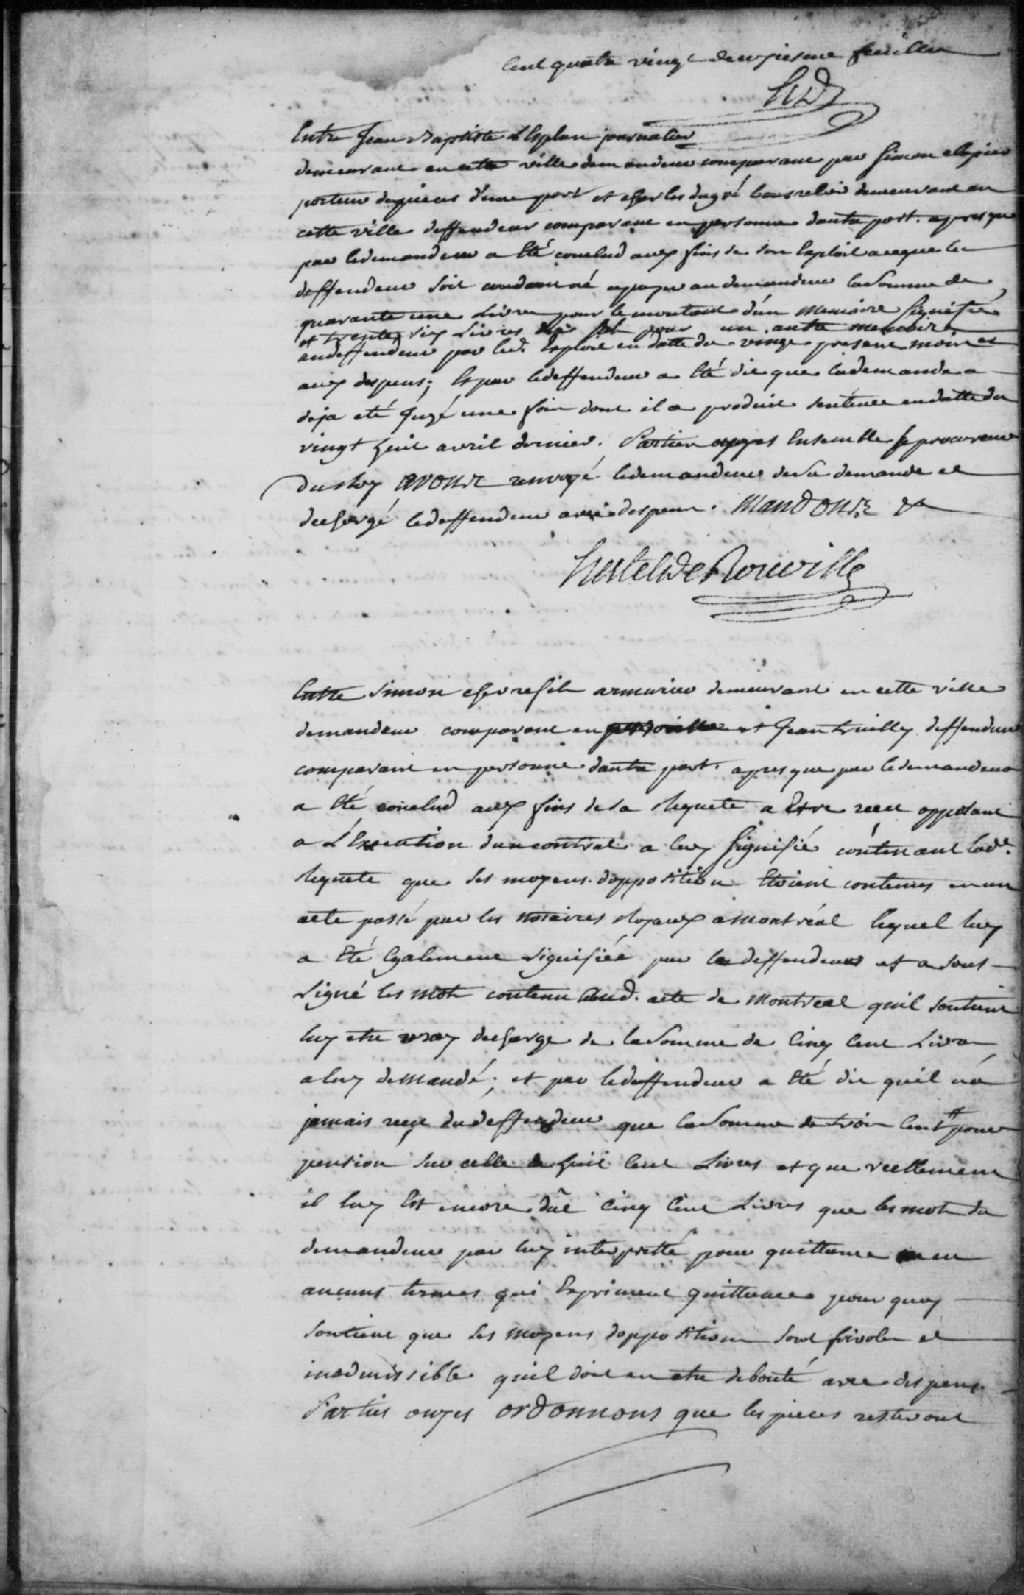 Cent quatre vingt deuxiesme feuillet
hdr
Entre Jean Baptiste L'Esplan
demeurant en cette ville demandeur comparant par Simon
porteur de pieces d'une part et Charles demeurant en
cette ville deffendeur comparant en personne dautre part. apres que
par le demandeur a Eté conclud aux fins de son Exploit a ce que le
deffendeur soit condamné a payer au demandeur la Somme de
quarante une Livres pour le montant d'un Memoire Signifié
et trente six Livres dix sols pour un autre memoire
au deffendeur par led. Exploit en datte du vingt present mois et
aux depens; Et par le deffendeur a Eté dit que la demande a
deja eté Jugé une fois dont il a produit sentence en datte du
vingt huit avril dernier. Parties ouyes Ensemble le procureur
du Roy avons renvoyé le demandeur de sa demande et
dechargé le deffendeur avec depens. Mandons &
hertel de Rouville
Entre Simon chevrefils armurier demeurant en cette ville
demandeur comparant en personne et Jean deffendeur
comparant en personne dautre part. apres que par le demandeur
a Eté conclud aux fins de sa Requete a Etre receu opposant
a L'Execution dun contrat a luy Signifié contenant lade.
Requete que ses moyens d'opposition Etoient contenus en un
acte passé par les notaires Royaux a montréal lequel luy
a Eté Egalement signifiée par le deffendeur et a sous
signé les mots contenu aud. acte de Montreal quil soutient
luy etre vray decharge de la Somme de Cinq Cent Livres
a luy demandé; et par le deffendeur a Eté dit quil n'a
jamais reçu du deffendeur que la Somme de trois Cent ₶ pour
pension sur celle de huit Cent Livres et que reellement
il luy Est encore dûe Cinq Cent Livres que les mots du
demandeur par luy interpretté pour quittance en
aucuns termes qui Expriment quittance pour quoy
soutient que les moyens dopposition sont frivoles et
inadmissible quil doit en etre debouté avec depens
Parties ouyes ordonnons que les pieces resteront